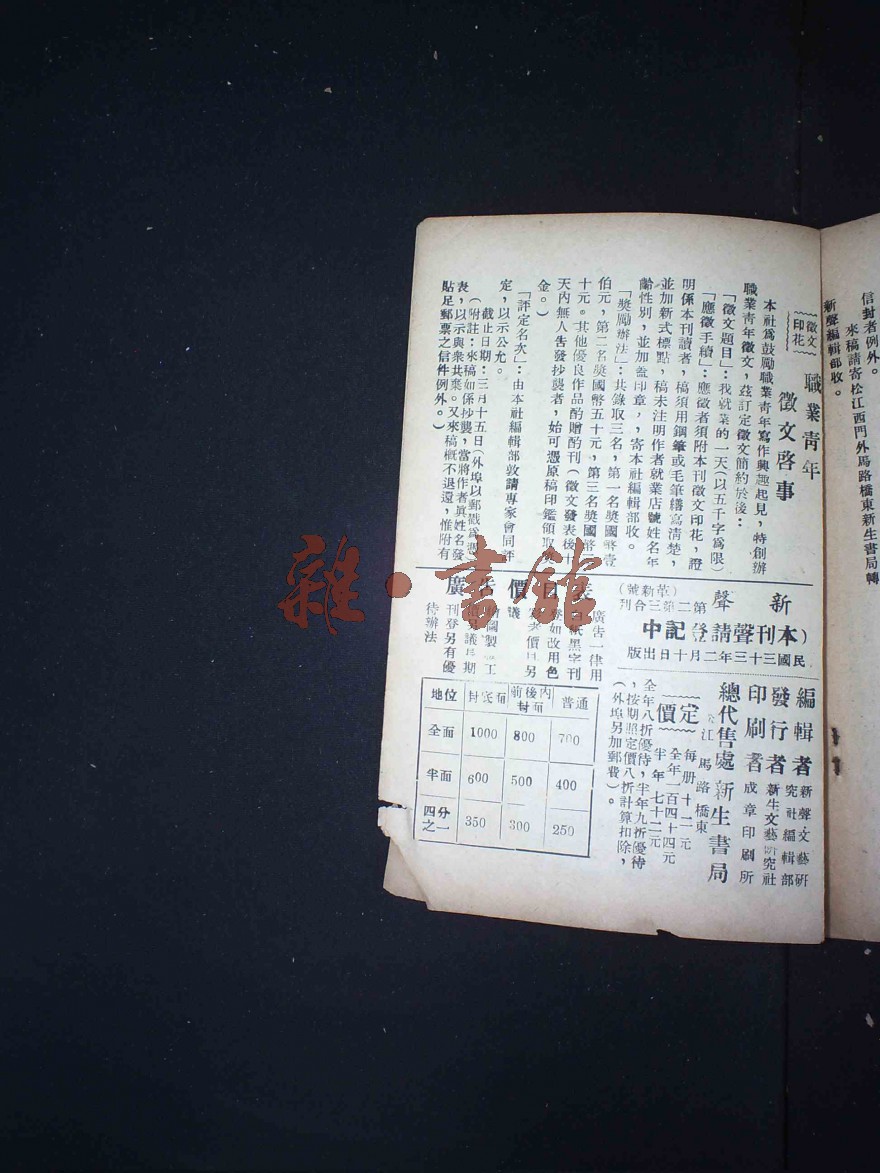 信封者例外。
來稿請寄松江西門外馬路橋東新生書局轉
新聲編輯部收。
徵文
印花
職業青年
徵文啓事
本社爲鼓勵職業青年寫作興趣起見,特創辦
職業青年徵文,茲訂定徵文簡約於後:
「徵文題目」:我就業的一天(以五千字爲限)
「應徵手續」:應徵者須附本刊徵文印花,證
明係本刊讀者,稿須用鋼筆或毛筆繕寫清楚,
並加新式標點,稿末注明作者就業店號姓名年
齡性別,並加盖印章,,寄本社編輯部收。
「獎勵辦法」:共錄取三名,第一名獎國幣壹
伯元,第二名獎國幣五十元,第三名獎國幣
十元。其他優良作品酌贈酌刊(徵文發表後十
天內無人告發抄襲者,始可憑原稿印鑑領取
金。)
「評定名次」:由本社編輯部敦請專家會同評
定,以示公允。
截止日期:三月十五日(外埠以郵戳爲憑)
(附註:來稿如係抄襲,當將作者眞姓名發
表,以示與衆共棄。又來稿概不退還,惟附有
貼足郵票之信件例外。)
新聲
(革新號)
第二第三合刊
(本刊聲請登記中
民國三十三年二月十日出版
編輯者 新聲文藝研究社編輯部
發行者 新生文藝研究社
印刷者 成章印刷所
總代售處 新生書局
江 馬路橋東
定價
每册十二元
全年一百四十四元
半年七十二元
全年八折優待,半年九折優待
,按期照定價八折計算扣除,
(外埠另加郵費)。
廣 價目表
廣告一律用
白紙黑字刊
登如改用色
價目另
議
繪圖製 工
議長期
刊登另有優
待辦法
地位 封底面 前後內封面 普通
全面 1000 800 700
半面 600 500 400
四分之一 350 300 250
雜·書館